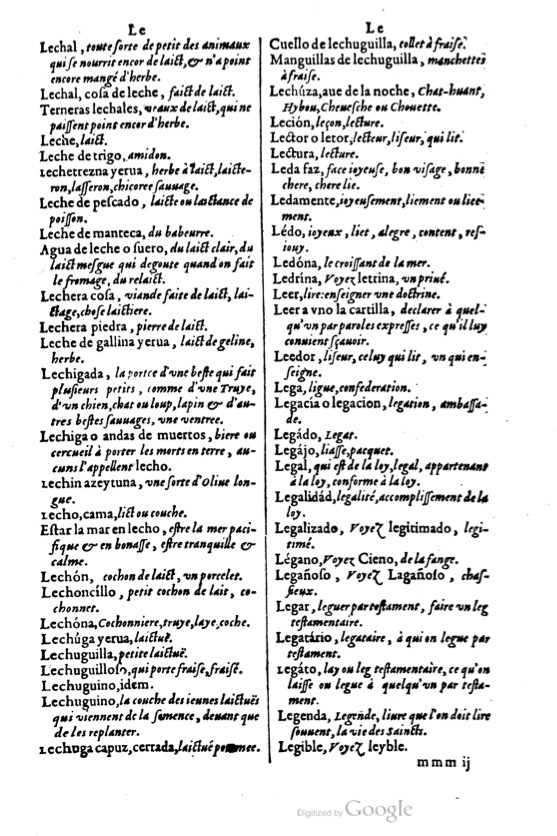 Le
Lechal, toute sorte de petit des animaux
qui se nourrit encor de laict, & n'a point
encore mangé d'herbe.
Lechal, cosa de leche, faict de laict.
Terneras lechales, veaux de laict, qui ne
paissent point encor d'herbe.
Leche, laict.
Leche de trigo, amidon.
Lechetrezna yerua, herbe à laict, laicte-
ron, lasseron, chicoree sauuage.
Leche de pescado, laicte ou lactance de
poisson.
Leche de manteca, du babeurre.
Agua de leche o suero, du laict clair, du
laict mesgue qui degoute quand on fait
le fromage, du relaict.
Lechera cosa, viande faite de laict, lai-
ctage, chose laictiere.
Lechera piedra, pierre de laict.
Leche de gallina yerua, laict de geline,
herbe.
Lechigada, la portee d'vne beste qui fait
plusieurs petits, comme d'vne Truye,
d'vn chien, chat ou loup, lapin & d'au-
tres bestes sauuages, vne ventree.
Lechiga o andas de muertos, biere ou
cercueil à porter les morts en terre, au-
cuns l'appellent lecho.
Lechin azeytuna, vne sorte d'Oliue lon-
gue.
Lecho, cama, lict ou couche.
Estar la mar en lecho, estre la mer paci-
fique & en bonasse, estre tranquille &
calme.
Lechón, cochon de laict, vn porcelet.
Lechoncillo, petit cochon de lait, co-
chonnet.
Lechóna, Cochonniere, truye, laye, coche.
Lechúga yerua, laictuë.
Lechuguilla, petite laictuë.
Lechuguilloso, qui porte fraise, fraisé.
Lechuguino, idem.
Lechuguino, la couche des ieunes laictuës
qui viennent de la semence, deuant que
de les replanter.
Lechuga capuz, cerrada, laictué pommee.
Le
Cuello de lechuguilla, collet à fraise.
Manguillas de lechuguilla, manchettes
à fraise.
Lechúza, aue de la noche, Chat-huant,
Hybou, Cheuesche ou Chouette.
Leción, leçon, lecture.
Lector o letor, lecteur, liseur, qui lit.
Lectura, lecture.
Leda faz, face ioyeuse, bon visage, bonne
chere, chere lie.
Ledamente, ioyeusement, liement ou liee-
ment.
Lédo, ioyeux, liet, alegre, content, res-
iouy.
Ledóna, le croissant de la mer.
Ledrína, Voyez letrina, vn priué.
Leer, lire: enseigner vne doctrine.
Leer a vno la cartilla, declarer à quel-
qu'vn par paroles expresses, ce qu'il luy
conuient sçauoir.
Leedor, liseur, celuy qui lit, vn qui en-
seigne.
Lega, ligue, confederation.
Legacia o legacion, legation, ambassa-
de.
Legádo, Legat.
Legájo, liasse, pacquet.
Legal, qui est de la loy, legal, appartenant
à la loy, conforme à la loy.
Legalidád, legalité, accomplissement de la
loy.
Legalizado, Voyez legitimado, legi-
timé.
Légano, Voyez Cieno, de la fange.
Legañoso, Voyez Lagañoso, chas-
sieux.
Legar, leguer par testament, faire vn leg
testamentaire.
Legatário, legataire, à qui on legue par
testament.
Legáto, lay ou leg testamentaire, ce qu'on
laisse ou legue à quelqu'vn par testa-
ment.
Legenda, Legende, liure que l'on doit lire
souuent, la vie des Saincts.
Legible, Voyez leyble.
mmm ij
Digitized by Google